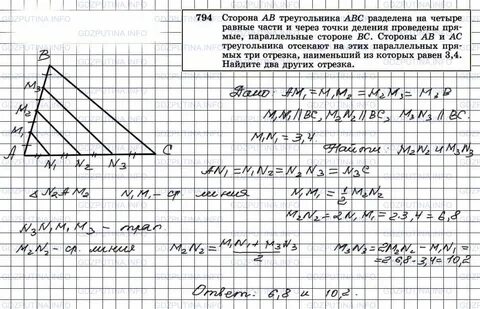 794 Сторона AB треугольника ABC разделена на четыре
равные части и через точки деления проведены пря-
мые, параллельные стороне BC. Стороны AB и AC
треугольника отсекают на этих параллельных пря-
мых три отрезка, наименьший из которых равен 3,4.
Найдите два других отрезка.
B
M₃
M₂
M₁
A
N₁ N₂ N₃ C
Дано: AM₁=M₁M₂=M₂M₃=M₃B
M₁N₁∥BC, M₂N₂∥BC, M₃N₃∥BC.
M₁N₁=3,4
Найти: M₂N₂ и M₃N₃
AN₁=N₁N₂=N₂N₃=N₃C
△N₂AM₂ N₁M₁-ср. линия N₁M₁=1/2 M₂N₂
M₂N₂=2N₁M₁=2·3,4=6,8
N₃N₁M₁M₃ - трап.
M₂N₂-ср. линия M₂N₂=(M₁N₁+M₃N₃)/2 M₃N₃=2M₂N₂-M₁N₁=
=2·6,8-3,4=10,2
Ответ: 6,8 и 10,2.
GDZPUTINA.INFO